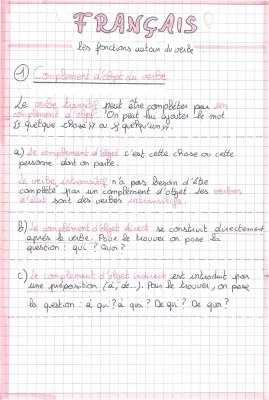 FRANÇAIS
Les fonctions autour du verbe
① Complément d'objet du verbe
Le verbe transitif peut être complété par un
complément d'objet. On peut lui ajouter le mot
« quelque chose » ou « quelqu'un ».
a) Le complément d'objet c'est cette chose ou cette
personne dont on parle.
Le verbe intransitif n'a pas besoin d'être
complété par un complément d'objet. Les verbes
d'état sont des verbes intransitifs.
b) Le complément d'objet direct se construit directement
après le verbe. Pour le trouver on pose la
question : qui ? Quoi ?
c) Le complément d'objet indirect est introduit par
une préposition (à, de..). Pour le trouver, on pose
la question : à qui ? à quoi ? De qui ? De quoi ?